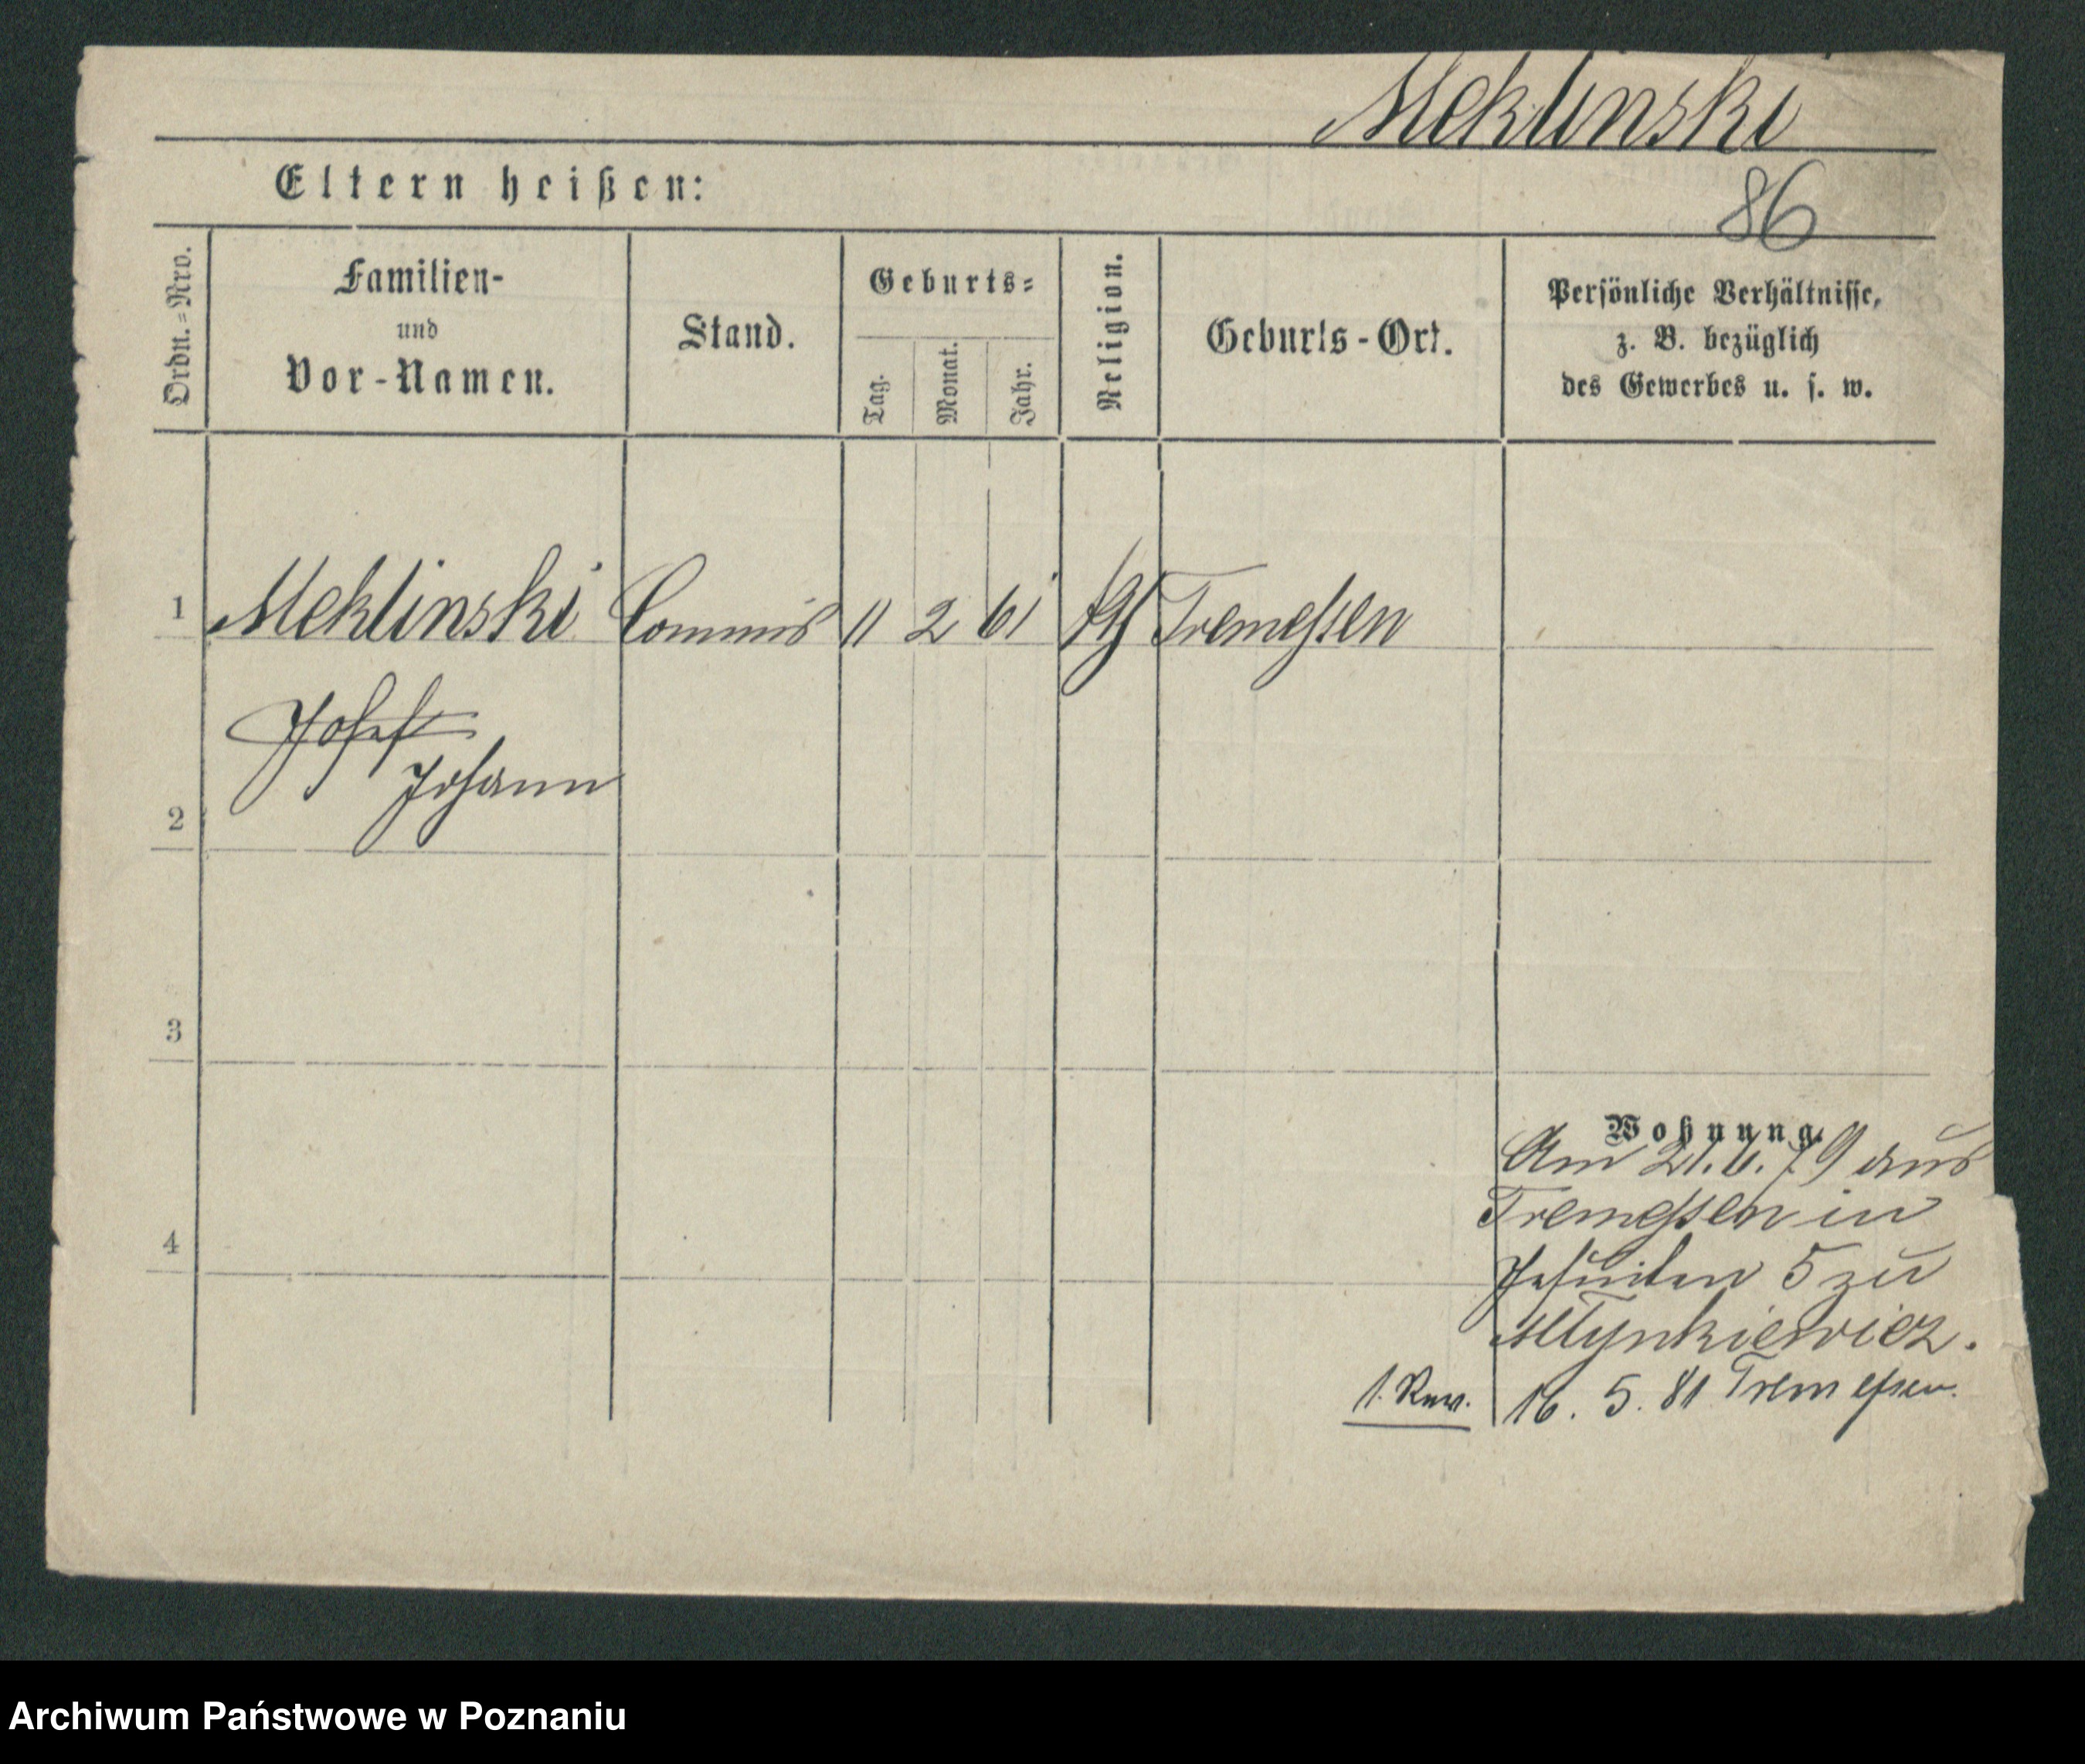 Meklinski
Eltern heißen:
86
Ordn.=Nro.
Familien-
und
Vor-Namen.
Stand.
Geburts=
Tag.
Monat.
Jahr.
Religion.
Geburts-Ort.
Persönliche Verhältnisse,
z. B. bezüglich
des Gewerbes u. s. w.
1 Meklinski Commis 11 2 61 Tremessen
Josef
Johann
2
3
Wohnung.
Am 21.6.79 aus
Tremessen in
4
Jesuiten 5 zu
Mlynkiewicz.
16. 5. 81 Tremessen.
Archiwum Państwowe w Poznaniu